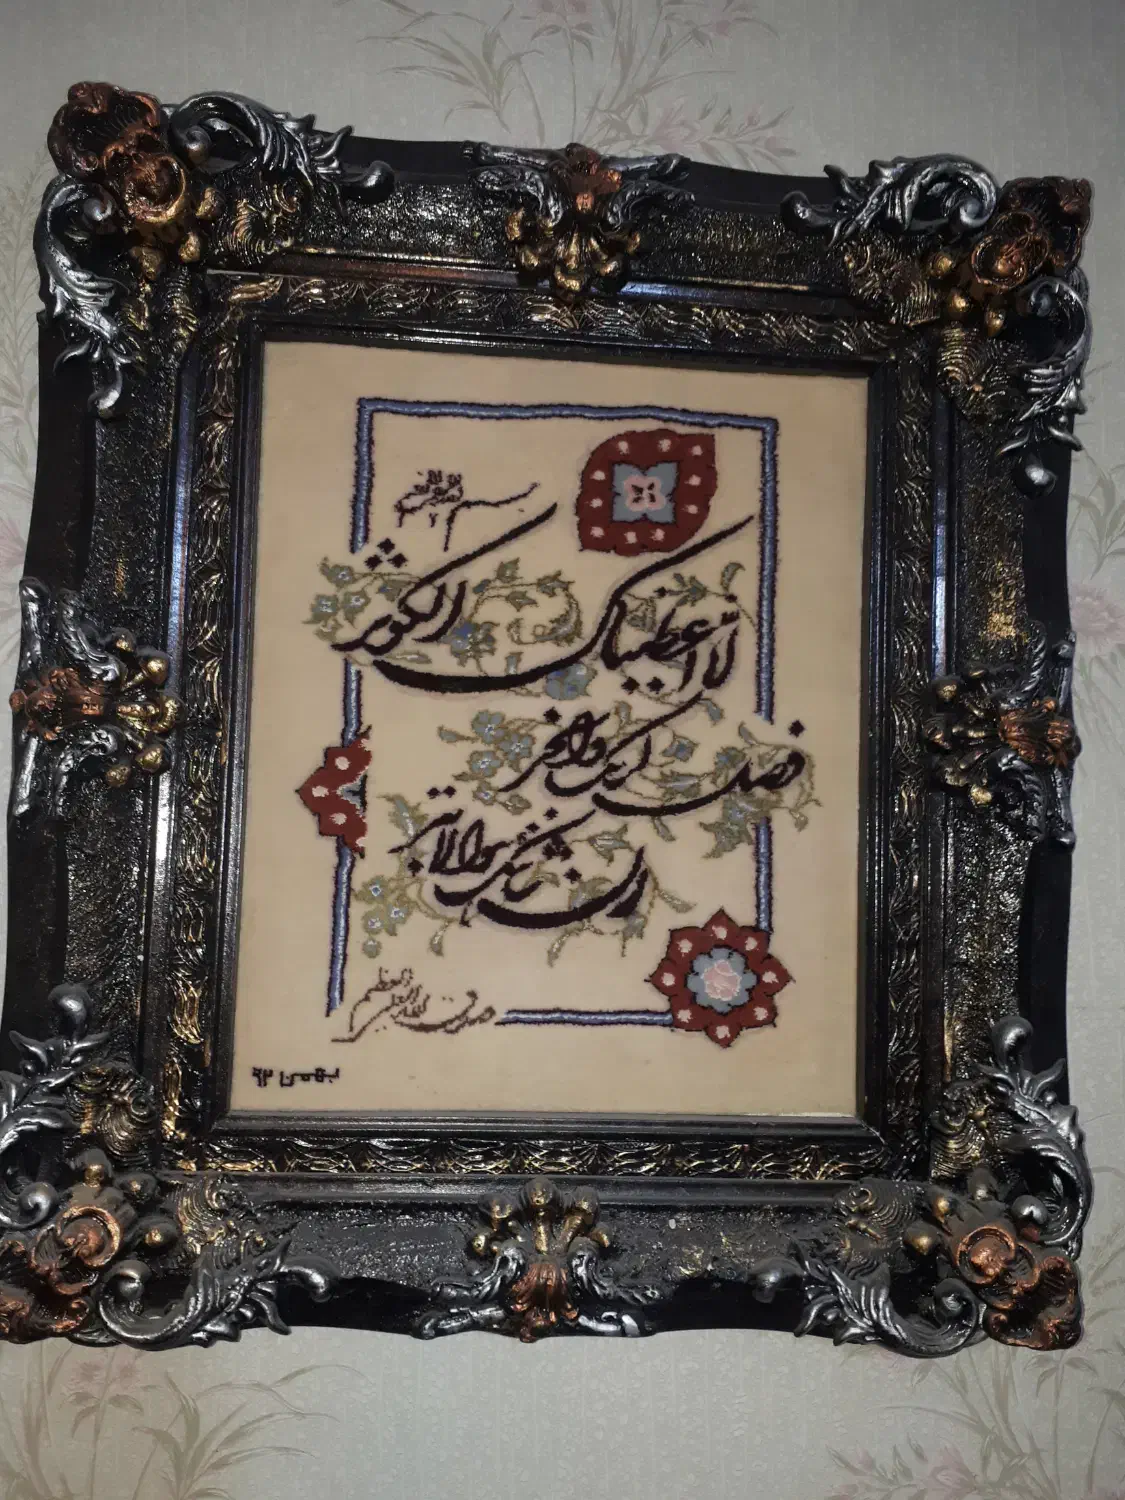 بسم الله الرحمن الرحیم
انا اعطیناک الکوثر
فصل لربک وانحر
ان شانئک هو الابتر
صدق الله العلی العظیم
بهمن ۹۳